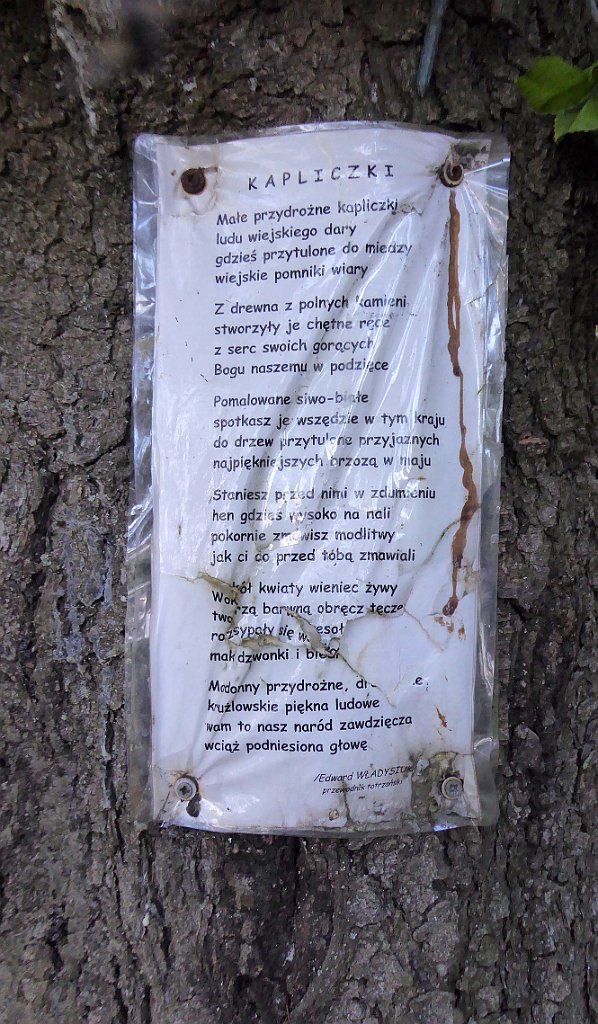 KAPLICZKI
Małe przydrożne kapliczki
ludu wiejskiego dary
gdzieś przytulone do miedzy
wiejskie pomniki wiary
Z drewna z polnych kamieni
stworzyły je chętne ręce
z serc swoich gorących
Bogu naszemu w podzięce
Pomalowane siwo-białe
spotkasz je wszędzie w tym kraju
do drzew przytulone przyjaznych
najpiękniejszych brzozą w maju
Staniesz przed nimi w zdumieniu
hen gdzieś wysoko na hali
pokornie zmówisz modlitwy
jak ci co przed tobą zmawiali
kwiaty wieniec żywy
barwną obręcz
się
mak dzwonki i
Madonny przydrożne,
kruźlowskie piękna ludowe
wam to nasz naród zawdzięcza
wciąż podniesiona głowę
/Edward
przewodnik tatrzański